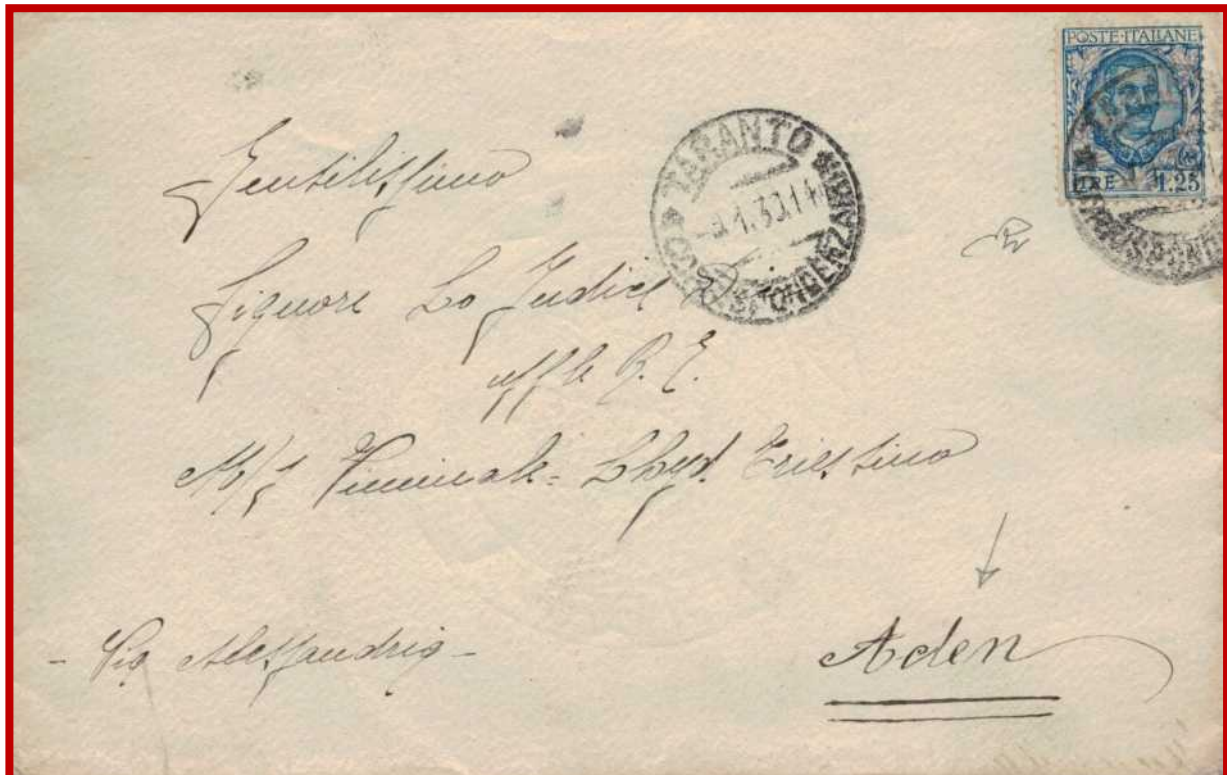 POSTE·ITALIANE
LIRE 1.25
TARANTO
CORRISPONDENZA
1.30.14
Gentilissimo
Signore Lo Judice
uff le R. E.
M/s Viminale = Lloyd Triestino
- Via Alessandria -
Aden